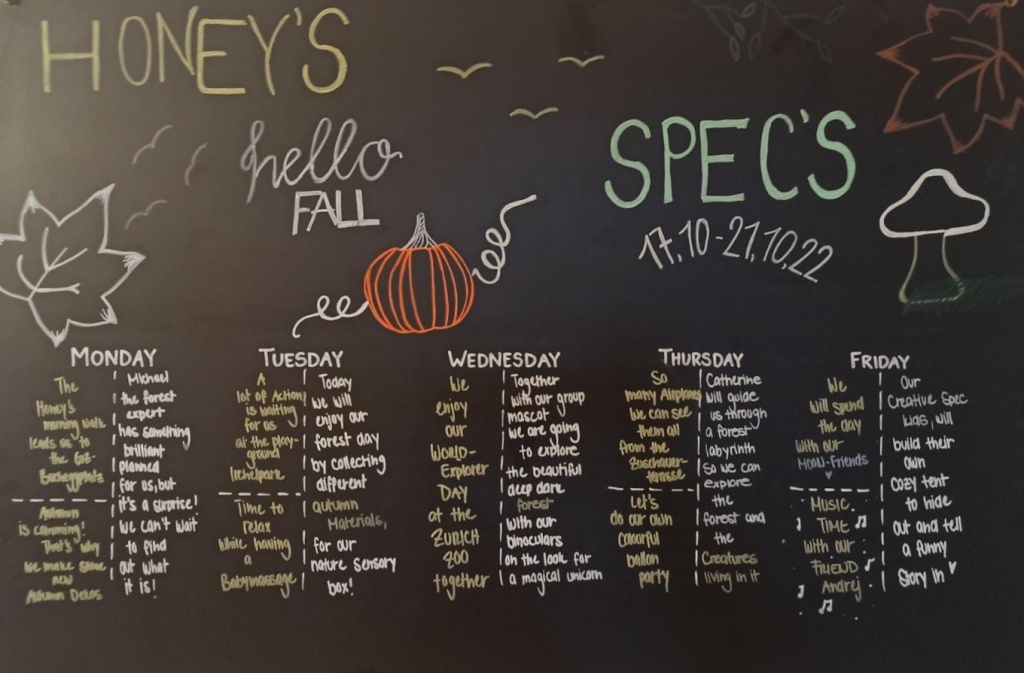 HONEY'S
hello
FALL
SPEC'S
17.10-21.10.22
MONDAY
The
Honey's
morning walk
leads us to
the GZ-
Bachwiesen
Autumn
is comming!
That's why
we make some
new
Autumn Dekos
Michael
the forest
expert
has something
brilliant
planned
for us, but
it's a surprise!
we can't wait
to find
out what
it is!
TUESDAY
A
lot of Action
is waiting
for us
at the play-
ground
Irchelpark
Time to
relax
while having
a
Babymassage
Today
we will
enjoy our
forest day
by collecting
different
autumn
Materials,
for our
nature sensory
box!
WEDNESDAY
We
enjoy
our
WORLD-
Explorer
DAY
at the
ZURICH
ZOO
together
Together
with our group
mascot
we are going
to explore
the beautiful
deep dark
forest
with our
binoculars
on the look for
a magical unicorn
THURSDAY
So
many Airplanes
we can see
them all
from the
Zuschauer-
terasse
Let's
do our own
colourful
ballon
party
Catherine
will guide
us through
a forest
labyrinth
so we can
explore
the
forest and
the
Creatures
living in it
FRIDAY
We
will spend
the day
with our
MOON-Friends
MUSIC
TIME
with our
FRIEND
Andrej
Our
Creative Spec
kids, will
build their
own
cozy tent
to hide
out and tell
a funny
Story in